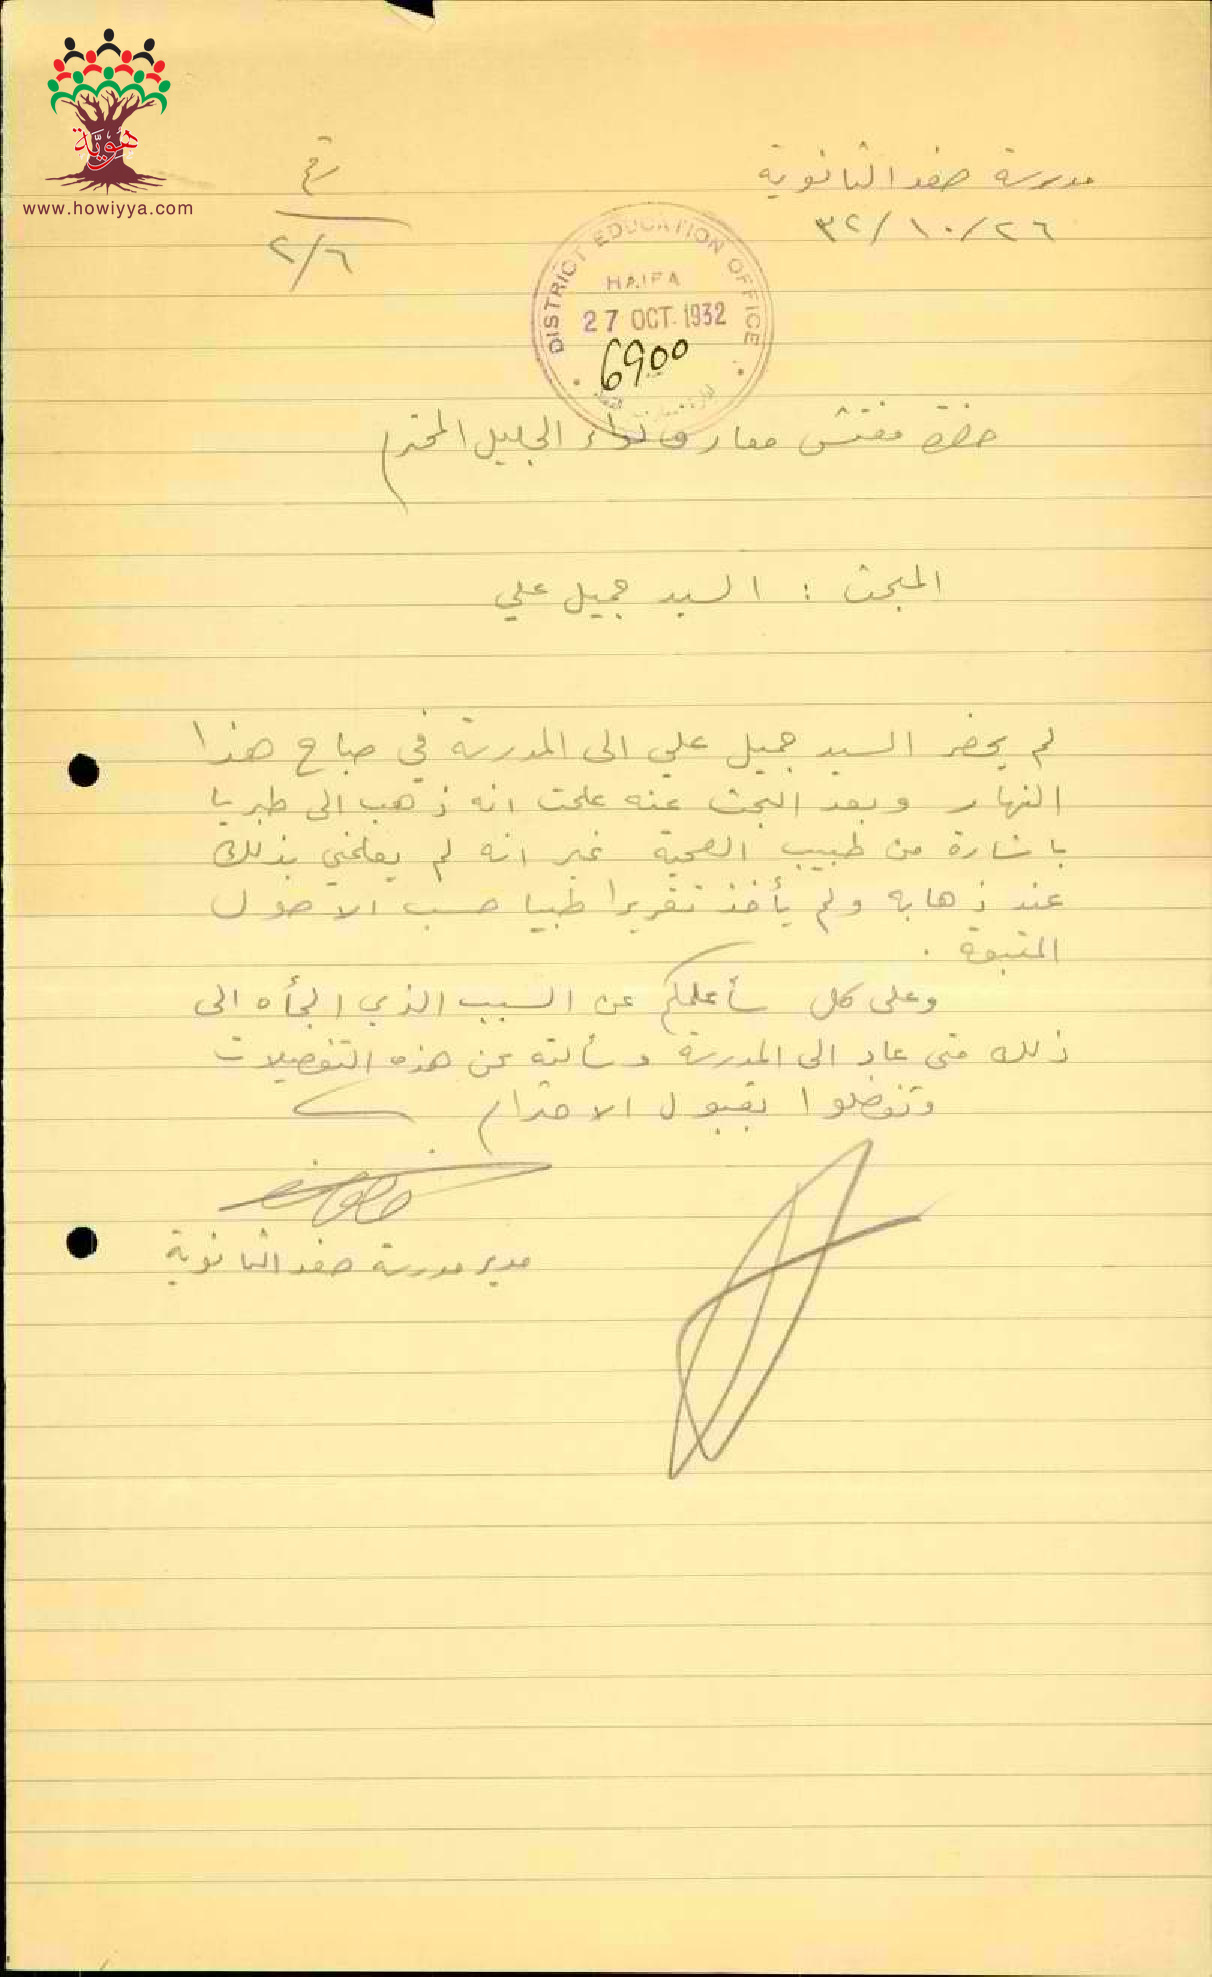 هوية
www.howiyya.com
مدرسة صفد الثانوية
٣٢/١٠/٢٦
رقم
٢/٦
DISTRICT EDUCATION OFFICE
HAIFA
27 OCT. 1932
6900
حضرة مفتش معارف لواء الجليل المحترم
المبحث : السيد جميل علي
لم يحضر السيد جميل علي الى المدرسة في صباح هذا
النهار وبعد البحث عنه علمت انه ذهب الى طبريا
باشارة من طبيب الصحية غير انه لم يعلمني بذلك
عند ذهابه ولم يأخذ تقريرا طبيا حسب الاصول
المتبعة .
وعلى كل سأعلمكم عن السبب الذي الجأه الى
ذلك متى عاد الى المدرسة وسألته عن هذه التفصيلات
وتفضلوا بقبول الاحترام
مدير مدرسة صفد الثانوية